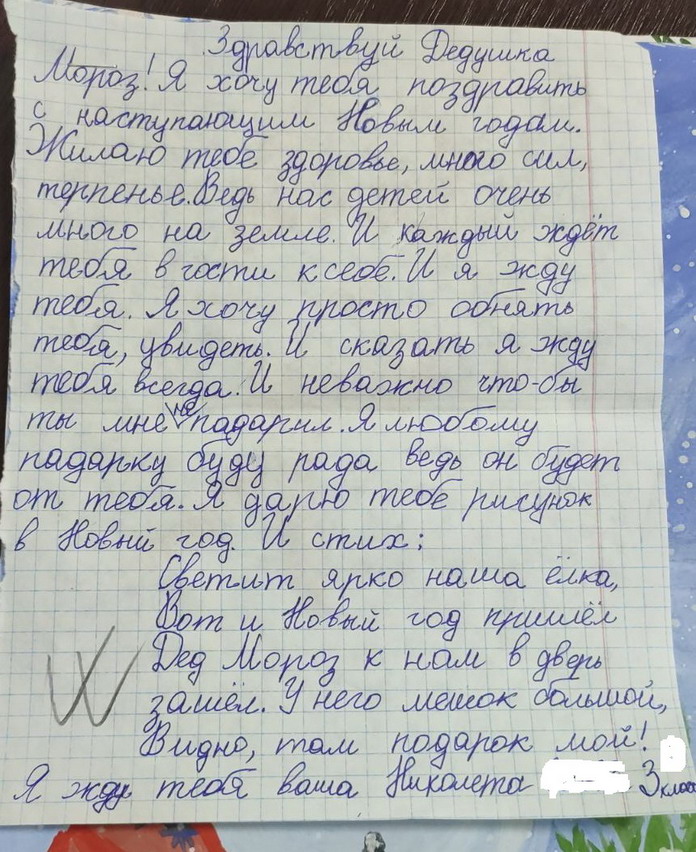 Здравствуй Дедушка
Мороз! Я хочу тебя поздравить
с наступающим Новым годом.
Жилаю тебе здоровье, много сил,
терпенье. Ведь нас детей очень
много на земле. И каждый ждёт
тебя в гости к себе. И я жду
тебя. Я хочу просто обнять
тебя, увидеть. И сказать я жду
тебя всегда. И неважно что-бы
ты мне не падарил. Я любому
падарку буду рада ведь он будет
от тебя. Я дарю тебе рисунок
в Новый год. И стих:
Светит ярко наша ёлка,
Вот и Новый год пришёл
Дед Мороз к нам в дверь
зашёл. У него мешок большой,
Видно, там подарок мой!
Я жду тебя ваша Николета 3 класс